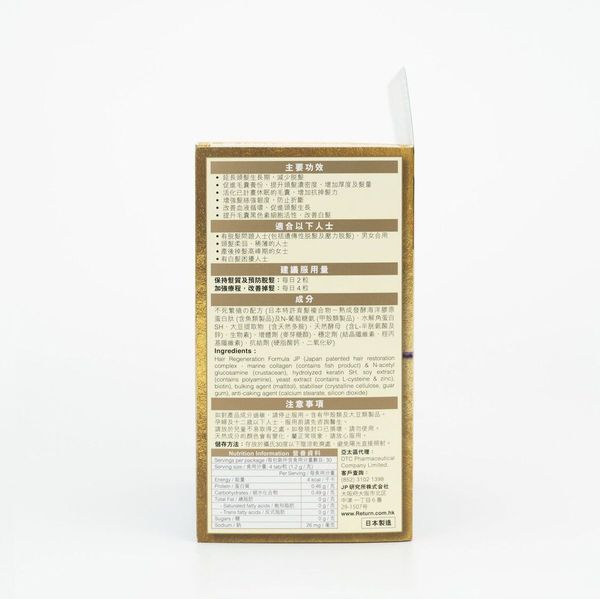 主要功效
• 延長頭髮生長期，減少脫髮
• 促進毛囊養份，提升頭髮濃密度，增加厚度及髮量
• 活化已計畫休眠的毛囊，增加抗掉髮力
• 增強髮絲強韌度，防止折斷
• 改善血液循環，促進頭髮生長
• 提升毛囊黑色素細胞活性，改善白髮
適合以下人士
• 有脫髮問題人士(包括遺傳性脫髮及壓力脫髮)，男女合用
• 頭髮柔弱、稀薄的人士
• 產後掉髮高峰期的女士
• 有白髮困擾人士
建議服用量
保持髮質及預防脫髮：每日2粒
加強療程，改善掉髮：每日4粒
成分
不死繁攝の配方 (日本特許育髮複合物－熟成發酵海洋膠原
蛋白肽 (含魚類製品)及N-葡萄糖氨(甲殼類製品)、水解角蛋白
SH、大豆提取物 (含天然多胺)、天然酵母 (含L-半胱氨酸及
鋅)、生物素)、增體劑 (麥芽糖醇)、穩定劑 (結晶纖維素、羥丙
基纖維素)、抗結劑 (硬脂酸鈣、二氧化矽)
Ingredients :
Hair Regeneration Formula JP (Japan patented hair restoration
complex - marine collagen (contains fish product) & N-acetyl
glucosamine (crustacean), hydrolyzed keratin SH, soy extract
(contains polyamine), yeast extract (contains L-cysteine & zinc),
biotin), bulking agent (maltitol), stabiliser (crystalline cellulose, guar
gum), anti-caking agent (calcium stearate, silicon dioxide)
注意事項
如對產品成分過敏，請停止服用。含有甲殼類及大豆類製品。
孕婦及十二歲以下人士，服用前請先咨詢醫生。
請放於兒童不易取得之處。如發現封口已損壞，請勿使用。
天然成分的顏色會有變化，屬正常現象，請放心服用。
儲存方法：存放於攝氏30度以下陰涼乾燥處，避免陽光直接照射。
Nutrition Information 營養資料
Servings per package /每包裝所含食用分量數目: 30
Serving size / 食用分量: 4 tab/粒 (1.2 g / 克)
Per Serving / 每食用分量
Energy / 能量 4 kcal / 千卡
Protein / 蛋白質 0.46 g / 克
Carbohydrates / 碳水化合物 0.49 g / 克
Total Fat / 總脂肪 0 g / 克
- Saturated fatty acids / 飽和脂肪 0 g / 克
- Trans fatty acids / 反式脂肪 0 g / 克
Sugars / 糖 0 g / 克
Sodium / 鈉 26 mg / 毫克
亞太區代理：
DTC Pharmaceutical
Company Limited.
客戶查詢：
(852) 3102 1398
JP 研究所株式会社
大阪府大阪市北区
中津一丁目6番
29-1507号
www.Return.com.hk
日本製造